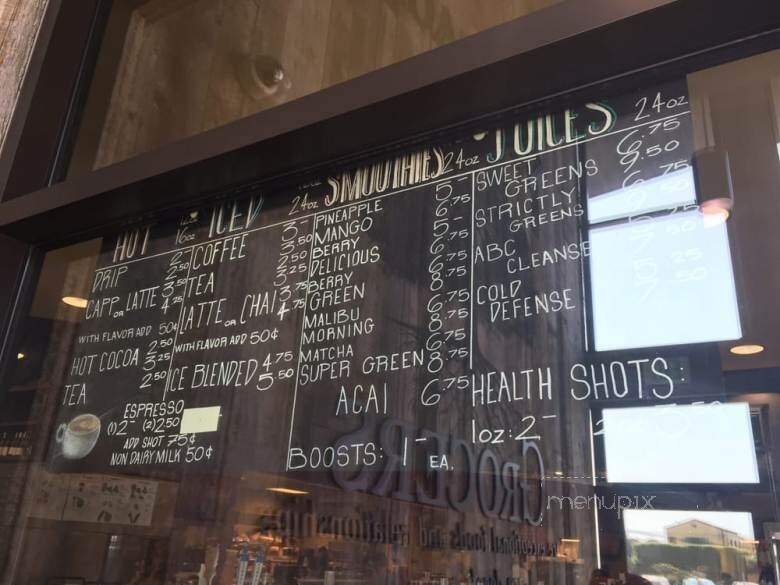 HOT
DRIP 2- 2.50
CAPP. OR LATTE 3.50 4.25
WITH FLAVOR ADD 50¢
HOT COCOA 2.50 3.25
TEA 2.50
ESPRESSO
(1) 2- (2) 2.50
ADD SHOT 75¢
NON DAIRY MILK 50¢
16oz ICED 24oz
COFFEE 3- 3.50
TEA 2.50 3.25
LATTE OR CHAI 3.75 4.75
WITH FLAVOR ADD 50¢
ICE BLENDED 4.75 5.50
SMOOTHIES 24oz
PINEAPPLE 5-
MANGO 6.75
BERRY 5-
DELICIOUS 6.75
BERRY 6.75
GREEN 8.75
MALIBU 6.75
MORNING 8.75
MATCHA 6.75
SUPER GREEN 8.75
ACAI 6.75
BOOSTS: 1- EA.
JUICES 24oz
SWEET 6.75
GREENS 9.50
STRICTLY 6.75
GREENS
ABC
CLEANSE
COLD
DEFENSE
HEALTH SHOTS:
1oz: 2-
GROCERS
menupix